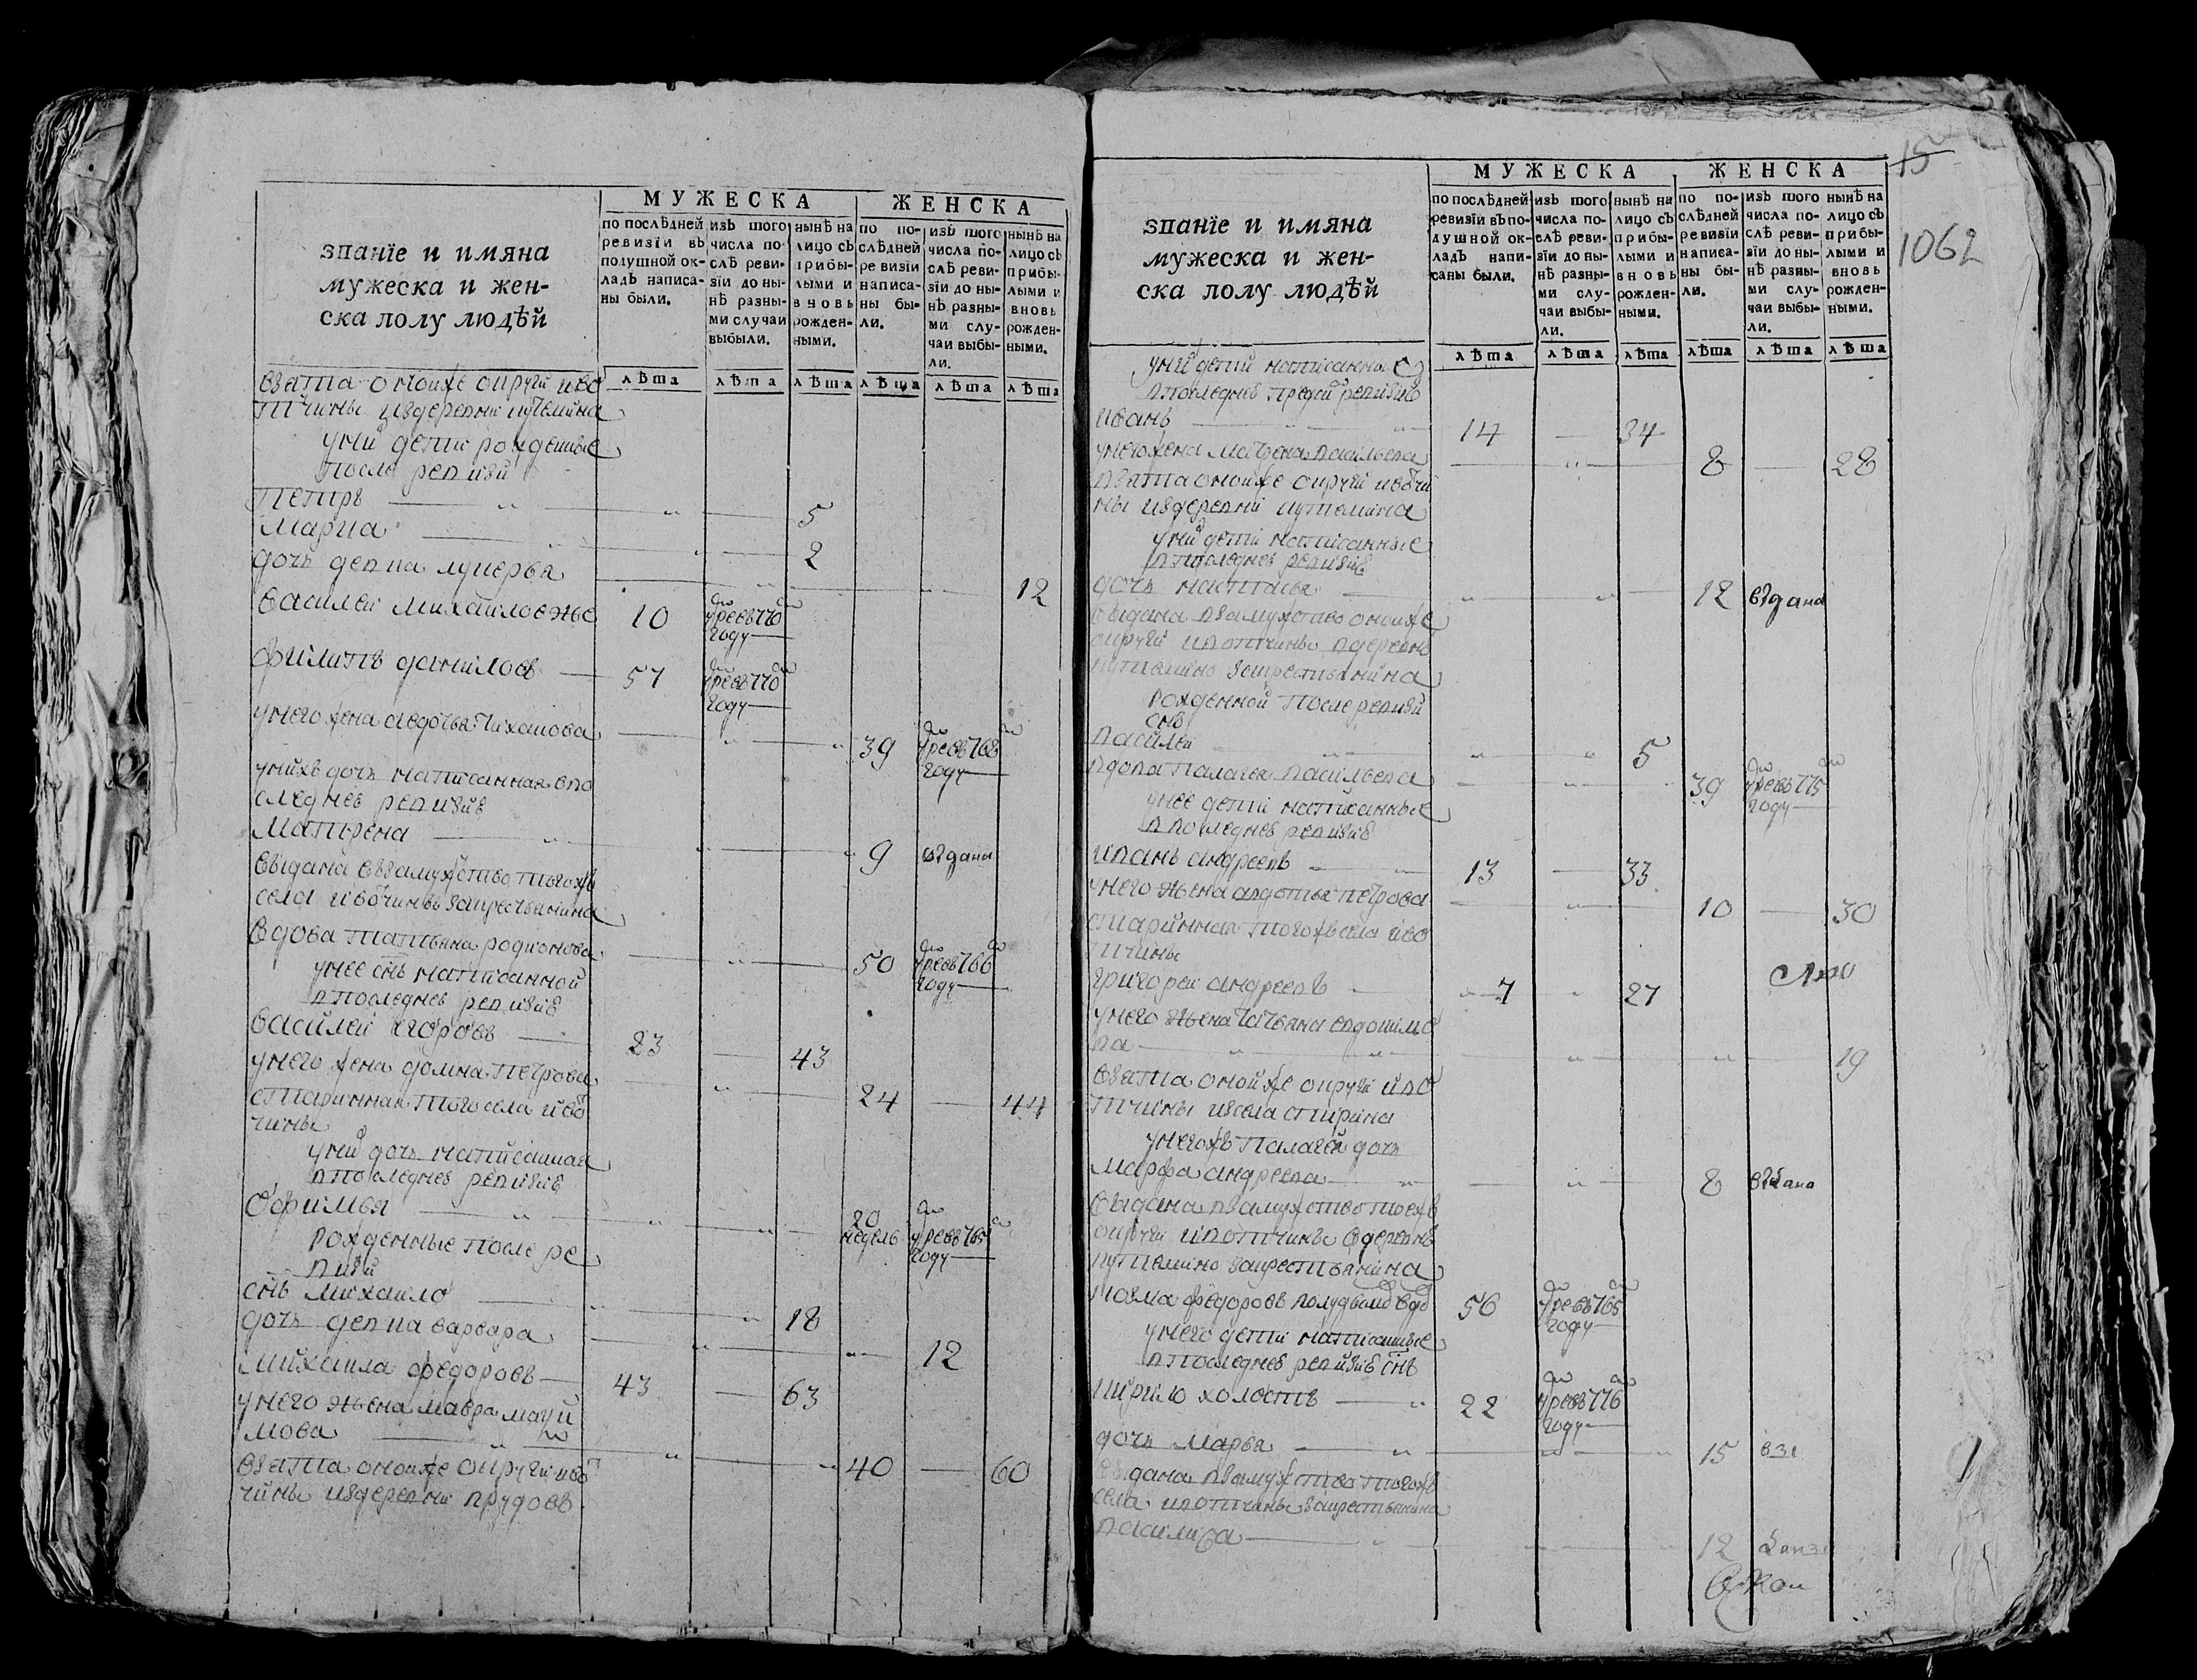 МУЖЕСКА
ЖЕНСКА
званїе и имяна
мужеска и жен-
ска полу людѣй
по послѣдней ревизїи въ подушной окладъ написаны были.
изъ того числа послѣ ревизїи до нынѣ разными случаи выбыли.
нынѣ на лицо съ прибылыми и вновь рожденными.
по послѣдней ревизїи написаны были.
изъ того числа послѣ ревизїи до нынѣ разными случаи выбыли.
нынѣ на лицо съ прибылыми и вновь рожденными.
лѣта лѣта лѣта лѣта лѣта лѣта
взята оной же округи и во
тчины из деревни
у них дети рожденные
после ревизи
Петръ 5
2
дочь девка лукерья 12
василей михайлов 10 умре в 770 году
филипъ данилов 57 умре в 770 году
у него жена 39 умре в 768 году
у них дочь написанная в по
следней ревизие
Матрена 9 выдана
выдана в замужство того ж
села и вотчины за крестьянина
вдова татьяна родионова 50 умре в 766 году
у нее снъ написанной
в последней ревизие
василей егоров 23 43
у него жена домна петрова 24 44
старинная того села и вот
чины
у них дочь написанная
в последней ревизие
Офимья 20 недель умре в 765 году
рожденные после ре
визи
снъ михайло 18
дочь девка варвара 12
михаила федоров 43 63
у него жена мавра
мова 40 60
взята оной же округи и вот
чины из деревни прудов
15
1062
МУЖЕСКА
ЖЕНСКА
званїе и имяна
мужеска и жен-
ска полу людѣй
по послѣдней ревизїи въ подушной окладъ написаны были.
изъ того числа послѣ ревизїи до нынѣ разными случаи выбыли.
нынѣ на лицо съ прибылыми и вновь рожденными.
по послѣдней ревизїи написаны были.
изъ того числа послѣ ревизїи до нынѣ разными случаи выбыли.
нынѣ на лицо съ прибылыми и вновь рожденными.
лѣта лѣта лѣта лѣта лѣта лѣта
у них дети написанные
в последней пред сей ревизие
иванъ 14 34
у него жена матрена васильева 8 28
взята оной же округи и вотчи
ны из деревни
у них дети написанные
в последней ревизие
дочь настасья 12 выдана
выдана в замужство оной же
округи и вотчины в деревню
за крестьянина
рожденной после ревизи
снъ
василей 5
вдова палагея васильева 39 умре в 775 году
у нее дети написанные
в последней ревизие
иванъ андреевъ 13 33
у него жена авдотья петрова 10 30
старинная того ж села и во
тчины
григорей андреевъ 7 27
у него жена татьяна евдокимо
ва 19
взята оной же округи и во
тчины из села спирина
у него ж палагеи дочь
марфа андреева 8 выдана
выдана в замужство той ж
округи и вотчины в деревню
за крестьянина
козма федоров 56 умре в 765 году
у него дети написанные
в последней ревизие снъ
кирило холостъ 22 умре в 776 году
дочь марья 15
выдана в замужство того ж
села и вотчины за крестьянина
василиса 12